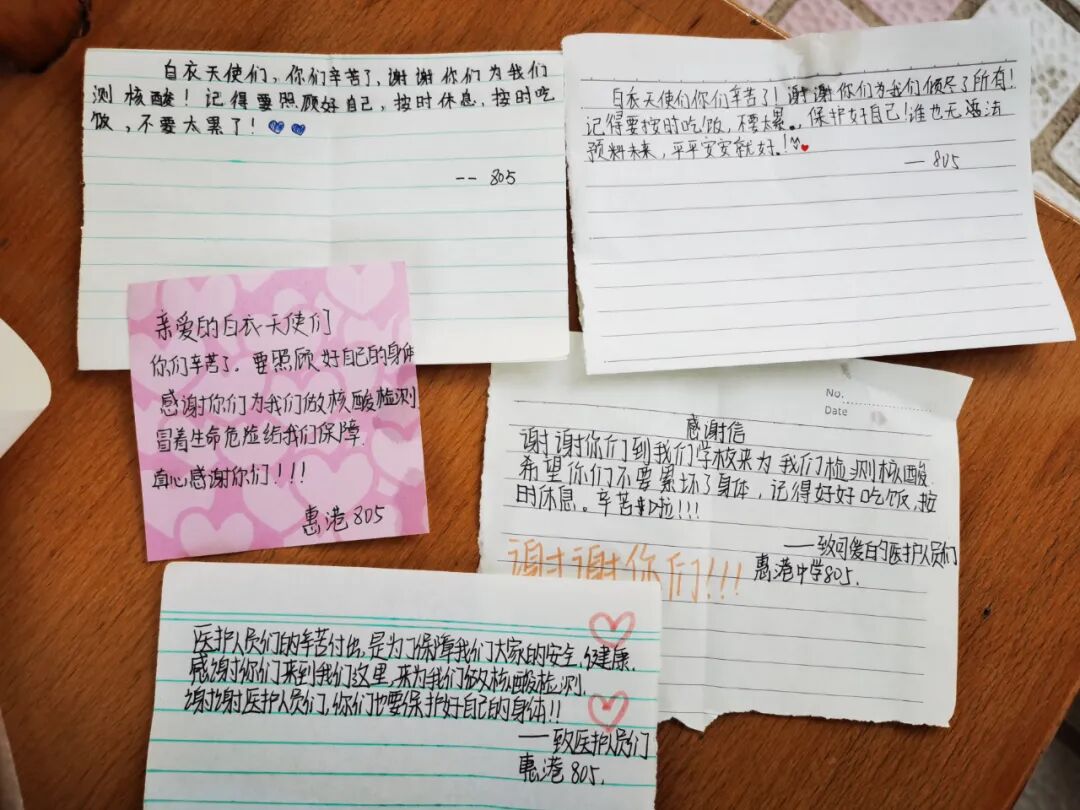 白衣天使们，你们辛苦了，谢谢你们为我们
测核酸！记得要照顾好自己，按时休息，按时吃
饭，不要太累了！
-- 805
白衣天使们你们辛苦了！谢谢你们为我们倾尽了所有！
记得要按时吃饭，不要太累。保护好自己！谁也无法
预料未来，平平安安就好！
— 805
亲爱的白衣天使们
你们辛苦了.要照顾好自己的身体
感谢你们为我们做核酸检测
冒着生命危险给我们保障.
真心感谢你们！！！
惠港805
No.
Date
感谢信
谢谢你们到我们学校来为我们检测核酸.
希望你们不要累坏了身体，记得好好吃饭,按
时休息。辛苦啦!!!
——致可爱的医护人员们
惠港中学805.
谢谢你们!!!
医护人员们的辛苦付出,是为了保障我们大家的安全,健康.
感谢你们来到我们这里,来为我们做核酸检测.
谢谢医护人员们,你们也要保护好自己的身体!!
——致医护人员们
惠港805.